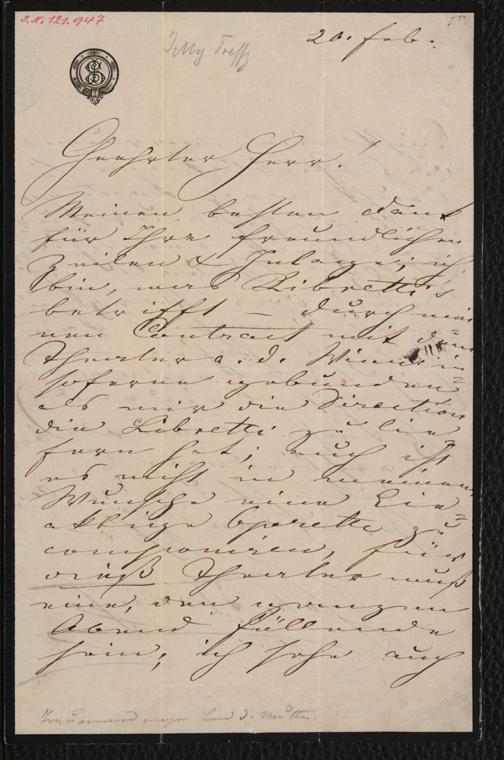 I.N. 121.947
Jetty Treffz
20. feb.
Geehrter Herr!
Meinen besten Dank
für Ihre freundlichen
Zeilen & Inlage; ich
bin, was Libretti's
betrifft — durch mei
nen Contract mit dem
Theater a. d. Wien in=
soferne gebunden
als mir die Direction
die Libretti zu lie=
fern hat; auch ist
es nicht in meinem
Wunsche eine Ein=
aktige Operette zu
componiren, für
dieß Theater muß
eine, den ganzen
Abend füllende
sein; ich sehe auch
Trauerrand wegen Tod d. Mutter.